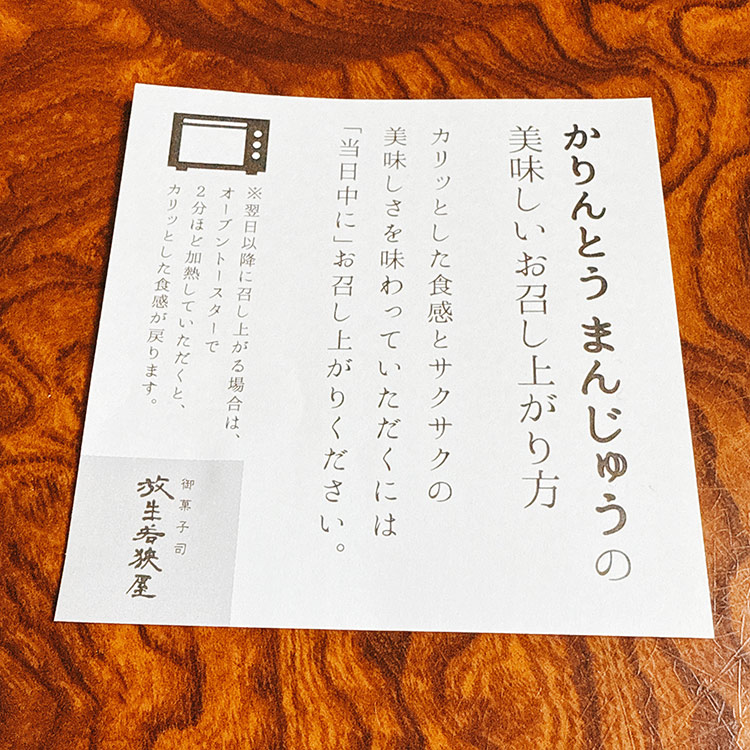 かりんとうまんじゅうの
美味しいお召し上がり方
カリッとした食感とサクサクの
美味しさを味わっていただくには
「当日中に」お召し上がりください。
※翌日以降に召し上がる場合は、
オーブントースターで
2分ほど加熱していただくと、
カリッとした食感が戻ります。
御菓子司
放生若狭屋